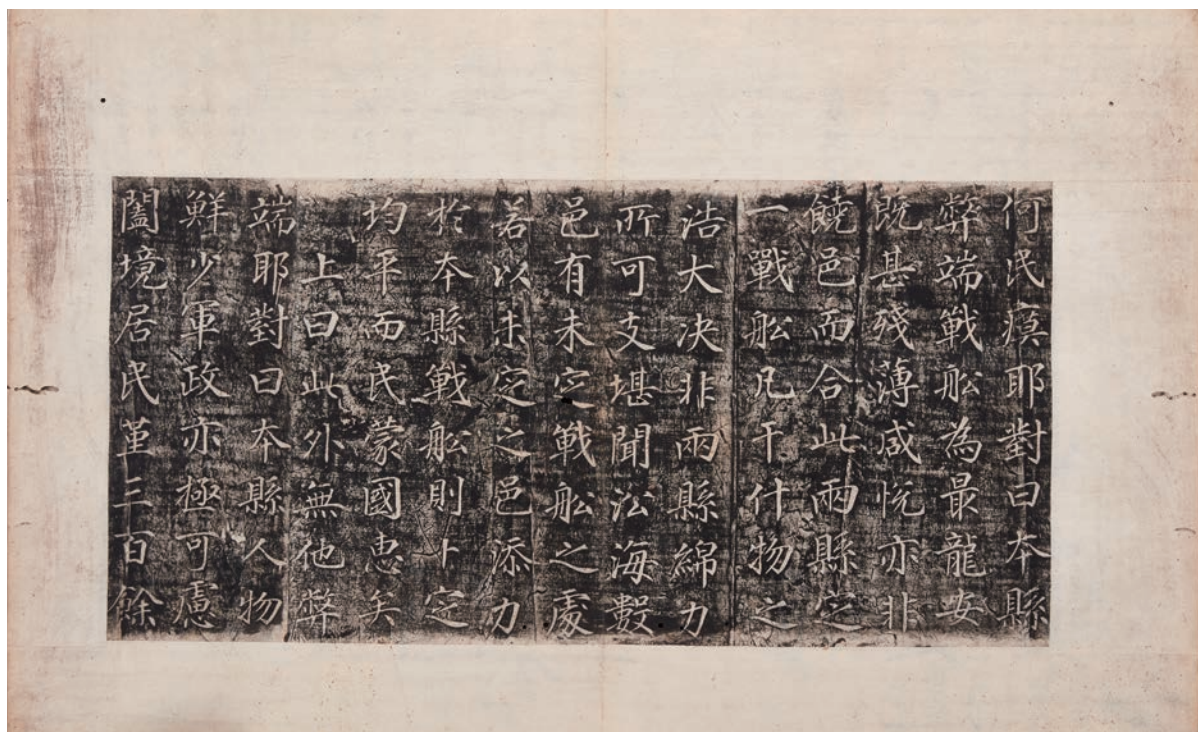 何民瘼耶對曰本縣
弊端戰舩為最龍安
既甚殘薄咸悅亦非
饒邑而合此兩縣定
一戰舩凡干什物之
浩大决非兩縣綿力
所可支堪聞沿海數
邑有未定戰舩之處
若以未定之邑添力
於本縣戰舩則卜定
均平而民蒙國惠矣
上曰此外無他弊
端耶對曰本縣人物
鮮少軍政亦極可慮
闔境居民堇三百餘